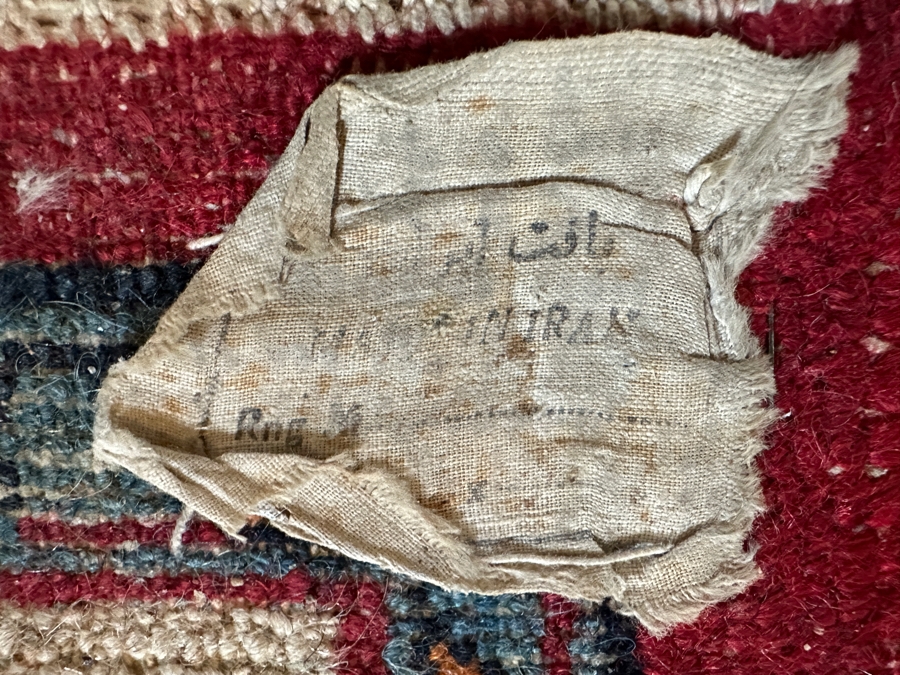 بافت ایران
MADE IN IRAN
Rug №